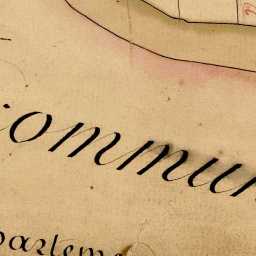 commun
parteme